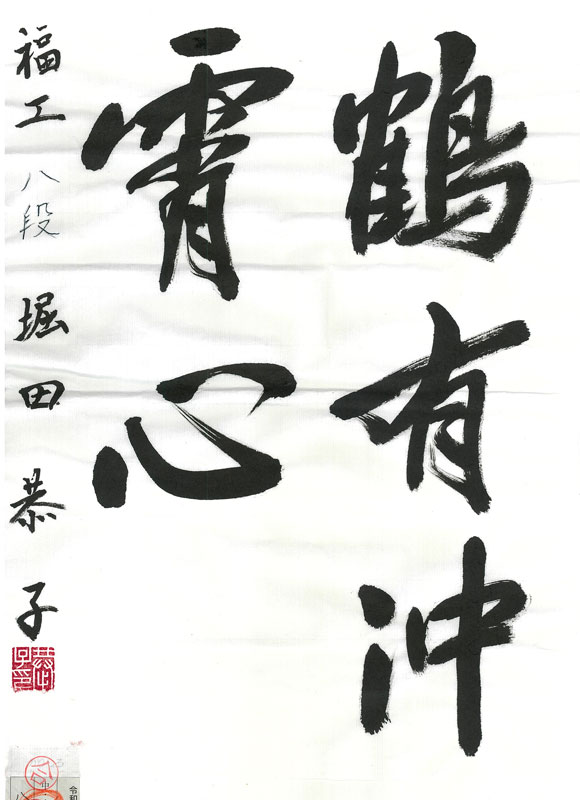 鶴有沖
霄心
福工 八段 堀田恭子
令和